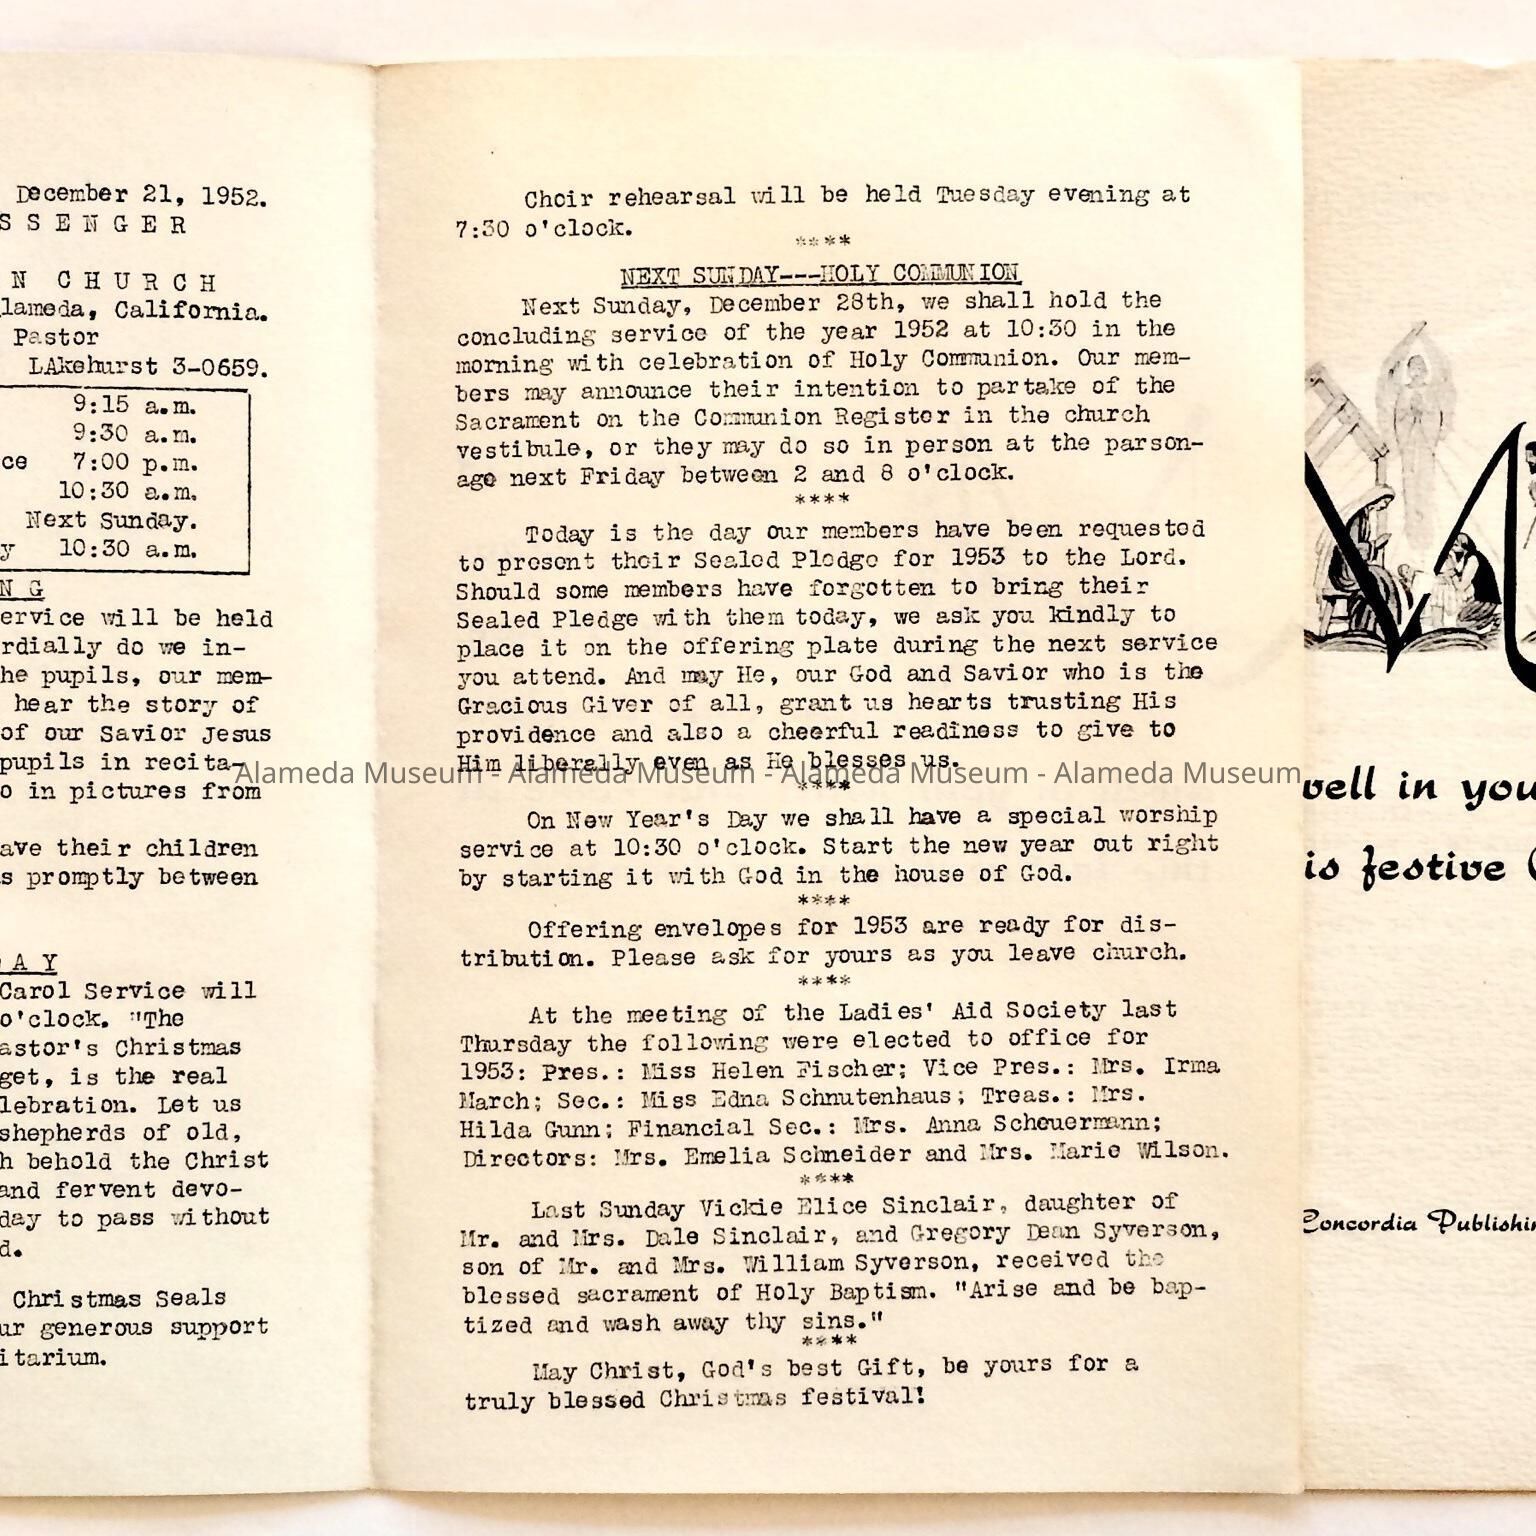 December 21, 1952.
SSENGER
N CHURCH
lameda, California.
Pastor
LAkehurst 3-0659.
9:15 a.m.
9:30 a.m.
ce 7:00 p.m.
10:30 a.m.
Next Sunday.
y 10:30 a.m.
NG
ervice will be held
rdially do we in-
he pupils, our mem-
hear the story of
of our Savior Jesus
pupils in recita-
o in pictures from
ave their children
s promptly between
AY
Carol Service will
o'clock. "The
astor's Christmas
get, is the real
lebration. Let us
shepherds of old,
h behold the Christ
and fervent devo-
day to pass without
d.
Christmas Seals
ur generous support
itarium.
Choir rehearsal will be held Tuesday evening at
7:30 o'clock.
****
NEXT SUNDAY---HOLY COMMUNION
Next Sunday, December 28th, we shall hold the
concluding service of the year 1952 at 10:30 in the
morning with celebration of Holy Communion. Our mem-
bers may announce their intention to partake of the
Sacrament on the Communion Register in the church
vestibule, or they may do so in person at the parson-
age next Friday between 2 and 8 o'clock.
****
Today is the day our members have been requested
to present their Sealed Pledge for 1953 to the Lord.
Should some members have forgotten to bring their
Sealed Pledge with them today, we ask you kindly to
place it on the offering plate during the next service
you attend. And may He, our God and Savior who is the
Gracious Giver of all, grant us hearts trusting His
providence and also a cheerful readiness to give to
Him liberally even as He blesses us.
Alameda Museum - Alameda Museum - Alameda Museum - Alameda Museum
****
On New Year's Day we shall have a special worship
service at 10:30 o'clock. Start the new year out right
by starting it with God in the house of God.
****
Offering envelopes for 1953 are ready for dis-
tribution. Please ask for yours as you leave church.
****
At the meeting of the Ladies' Aid Society last
Thursday the following were elected to office for
1953: Pres.: Miss Helen Fischer; Vice Pres.: Mrs. Irma
March; Sec.: Miss Edna Schnutenhaus; Treas.: Mrs.
Hilda Gunn; Financial Sec.: Mrs. Anna Scheuermann;
Directors: Mrs. Emelia Schneider and Mrs. Marie Wilson.
****
Last Sunday Vickie Elice Sinclair, daughter of
Mr. and Mrs. Dale Sinclair, and Gregory Dean Syverson,
son of Mr. and Mrs. William Syverson, received the
blessed sacrament of Holy Baptism. "Arise and be bap-
tized and wash away thy sins."
****
May Christ, God's best Gift, be yours for a
truly blessed Christmas festival!
well in you
is festive
Concordia Publishin